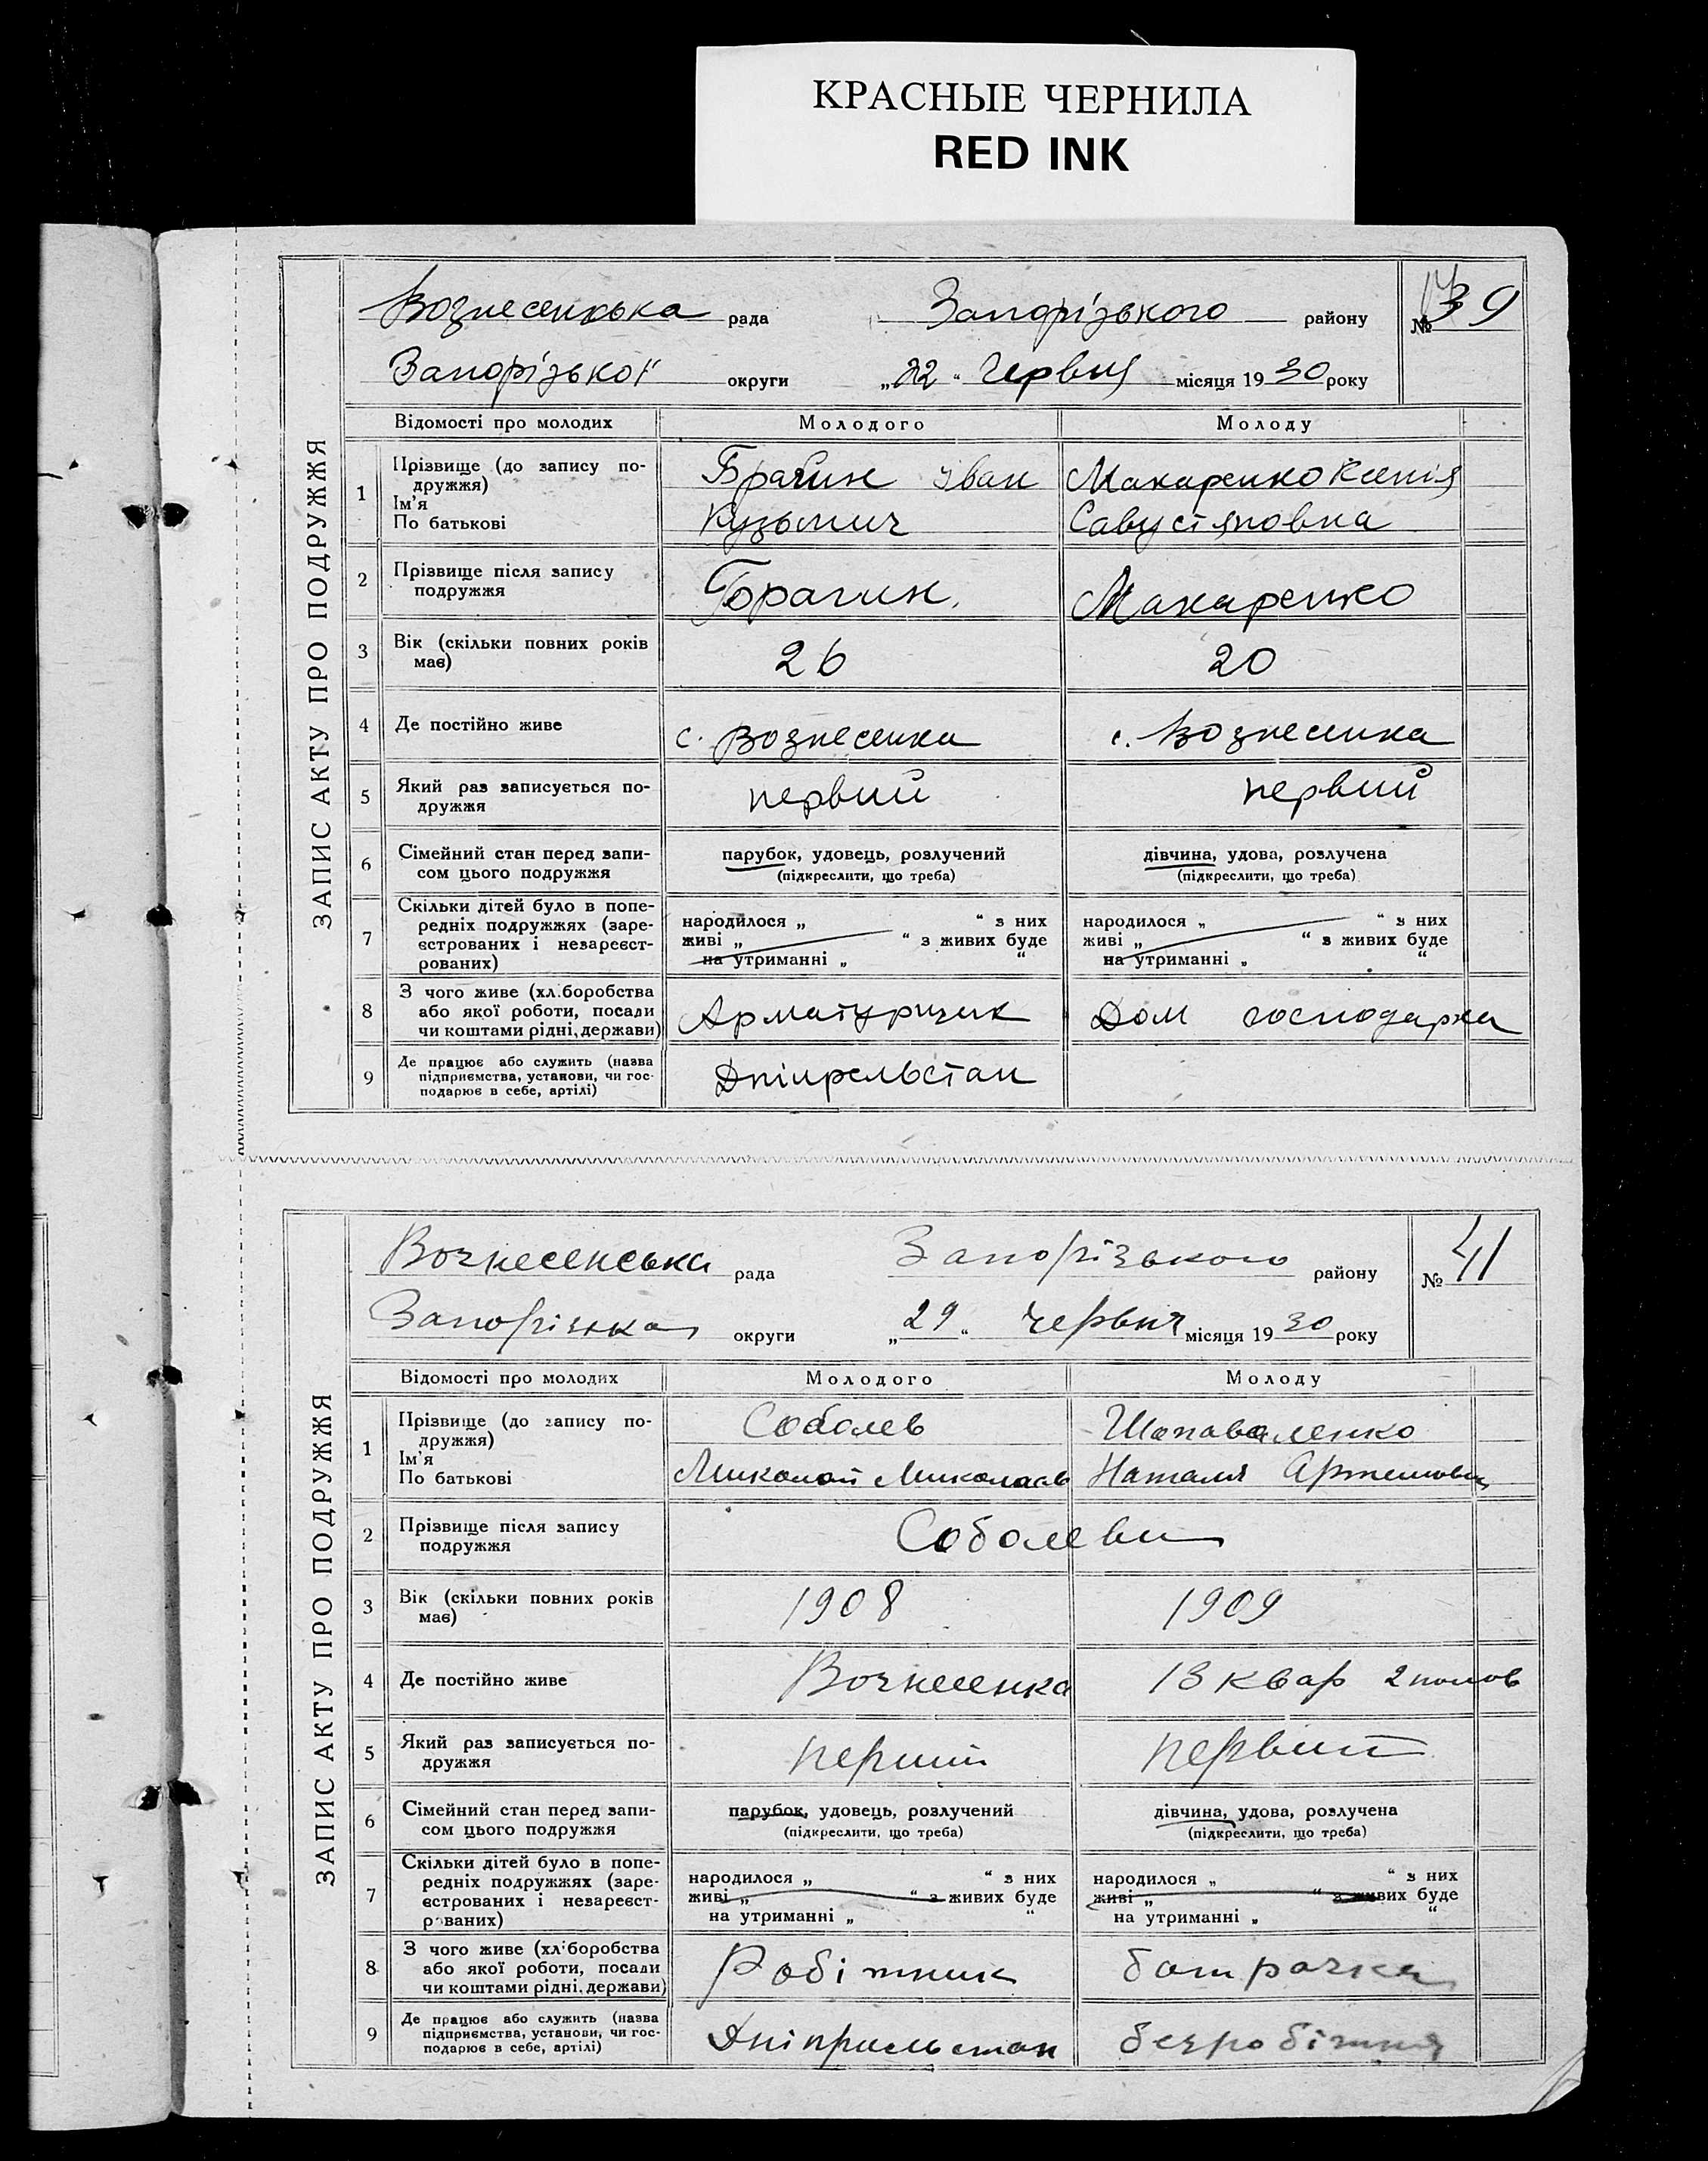 КРАСНЫЕ ЧЕРНИЛА
RED INK
ЗАПИС АКТУ ПРО ПОДРУЖЖЯ
Вознесенська рада Запорізького району № 39
Запорізької округи „22“ Червня місяця 1930 року
Відомості про молодих Молодого Молоду
1 Прізвище (до запису по-
дружжя)
Ім'я
По батькові
Іван Макаренко Ксенія
Кузьмич Савустяновна
2 Прізвище після запису
подружжя
Макаренко
3 Вік (скільки повних років
має)
26 20
4 Де постійно живе с. Вознесенка с. Вознесенка
5 Який раз записується по-
дружжя
первий первий
6 Сімейний стан перед запи-
сом цього подружжя
парубок, удовець, розлучений дівчина, удова, розлучена
(підкреслити, що треба) (підкреслити, що треба)
7 Скільки дітей було в попе-
редніх подружжях (заре-
єстрованих і незареєст-
рованих)
народилося „ “ з них народилося „ “ з них
живі „ “ з живих буде живі „ “ з живих буде
на утриманні „ “ на утриманні „ “
8 З чого живе (хліборобства
або якої роботи, посади
чи коштами рідні, держави)
Арматурщик Дом господарка
9 Де працює або служить (назва
підприємства, установи, чи гос-
подарює в себе, артілі)
Дніпрельстан
ЗАПИС АКТУ ПРО ПОДРУЖЖЯ
Вознесенська рада Запорізького району № 41
Запорізька округи „29“ червня місяця 1930 року
Відомості про молодих Молодого Молоду
1 Прізвище (до запису по-
дружжя)
Ім'я
По батькові
Соболев Шаповаленко
Миколай Миколаєв Наталія Артемовна
2 Прізвище після запису
подружжя
Соболеви
3 Вік (скільки повних років
має)
1908 1909
4 Де постійно живе Вознесенка 13 квар 2 полов
5 Який раз записується по-
дружжя
перший первий
6 Сімейний стан перед запи-
сом цього подружжя
парубок, удовець, розлучений дівчина, удова, розлучена
(підкреслити, що треба) (підкреслити, що треба)
7 Скільки дітей було в попе-
редніх подружжях (заре-
єстрованих і незареєст-
рованих)
народилося „ “ з них народилося „ “ з них
живі „ “ з живих буде живі „ “ з живих буде
на утриманні „ “ на утриманні „ “
8 З чого живе (хліборобства
або якої роботи, посади
чи коштами рідні, держави)
Робітник батрачка
9 Де працює або служить (назва
підприємства, установи, чи гос-
подарює в себе, артілі)
Дніпрельстан безробітня